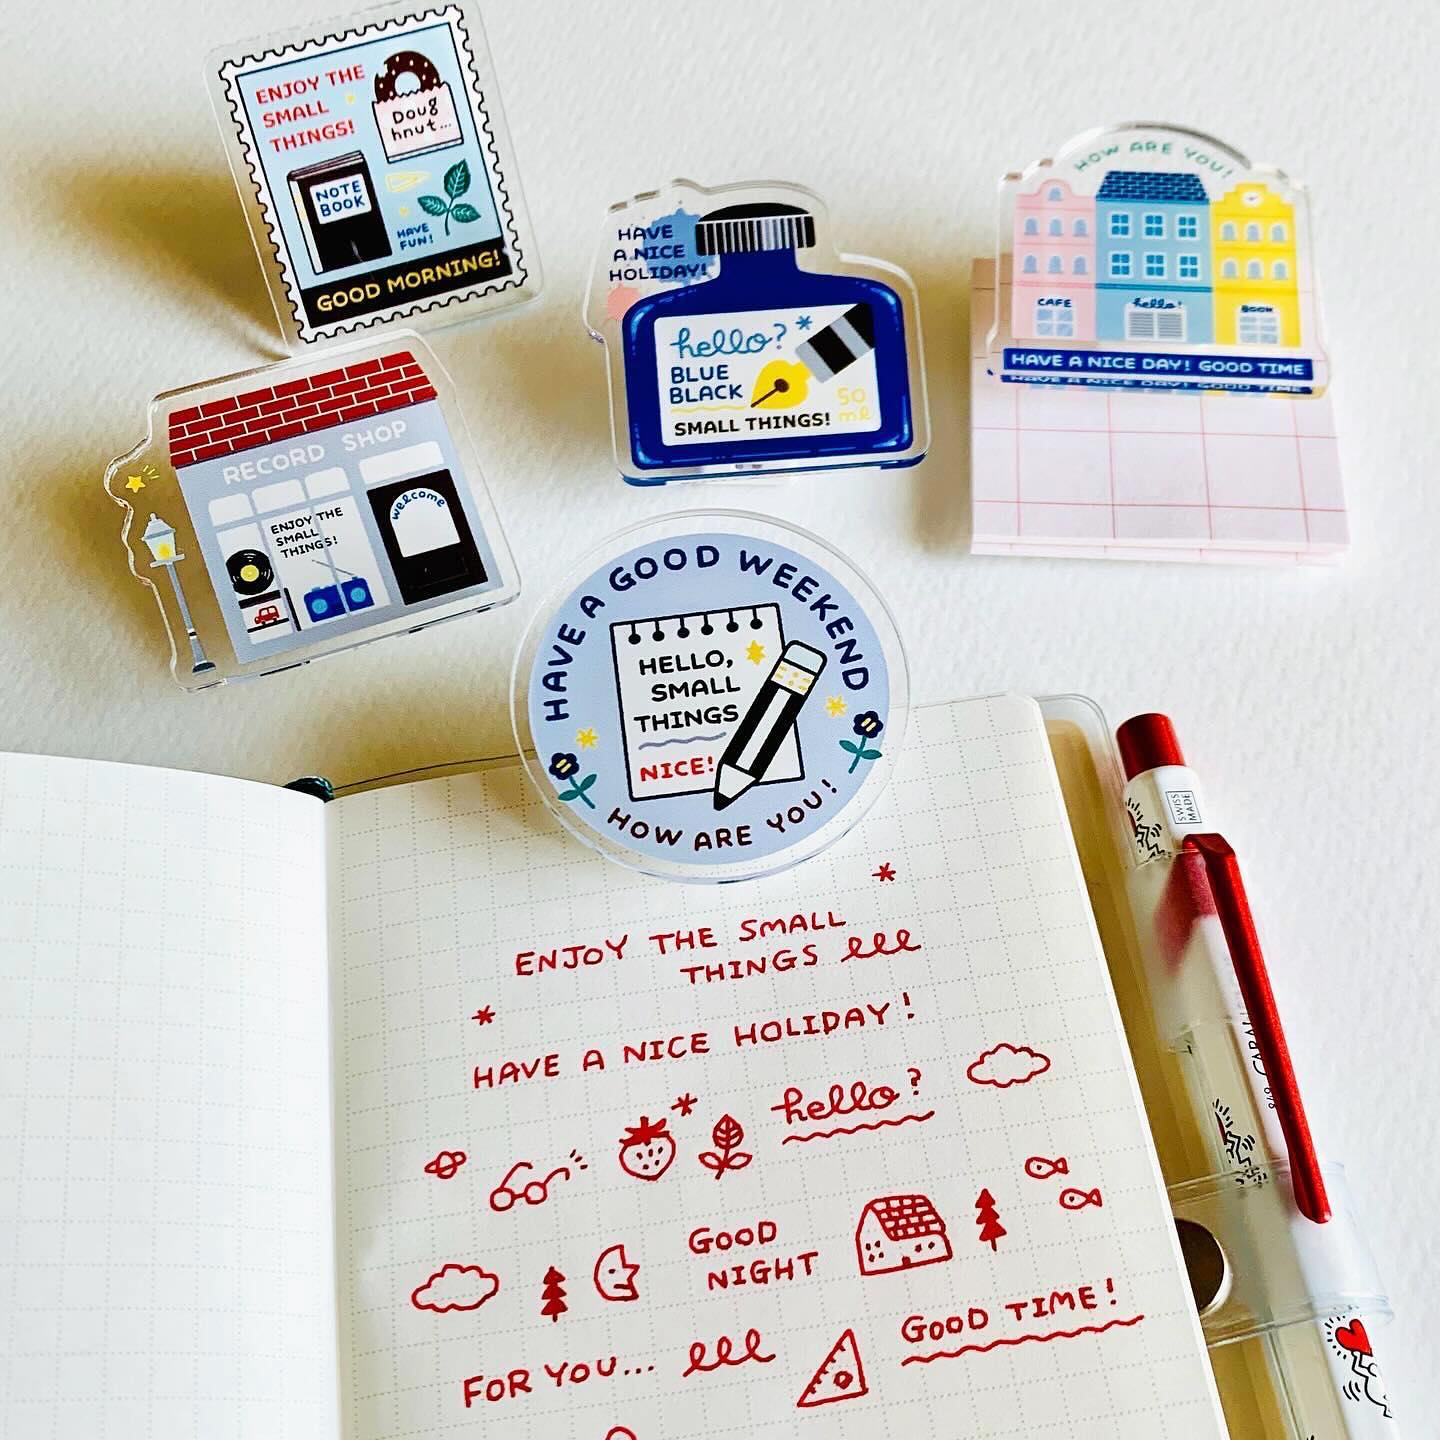 ENJOY THE
SMALL
THINGS!
Doug
hnut...
NOTE
BOOK
HAVE
FUN!
GOOD MORNING!
HAVE
A NICE
HOLIDAY!
hello?
BLUE
BLACK
50
ml
SMALL THINGS!
HOW ARE YOU!
CAFE
hello!
BOOK
HAVE A NICE DAY! GOOD TIME
HAVE A NICE DAY! GOOD TIME
RECORD SHOP
welcome
ENJOY THE
SMALL
THINGS!
HAVE A GOOD WEEKEND
HELLO,
SMALL
THINGS
NICE!
HOW ARE YOU!
SWISS
MADE
ENJOY THE SMALL
THINGS
HAVE A NICE HOLIDAY!
hello?
GOOD
NIGHT
FOR YOU...
GOOD TIME!